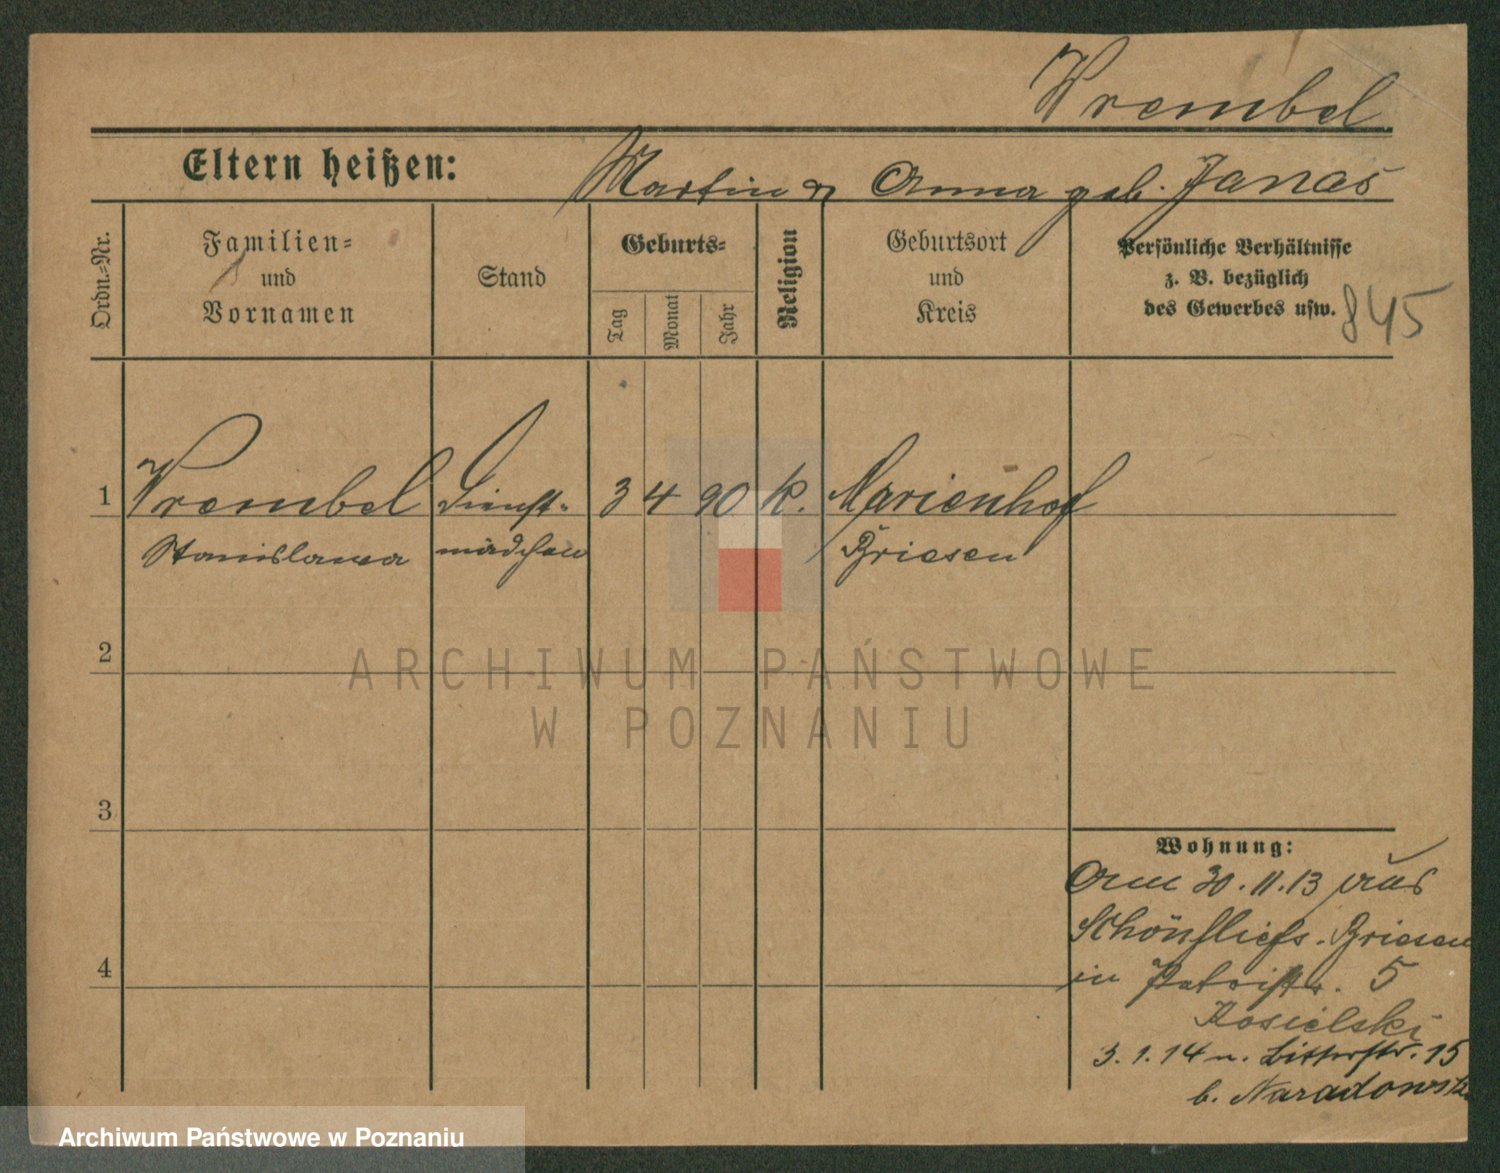 Wrembel
Eltern heißen: Martin & Anna geb. Janas
Ordn.-Nr.
Familien-
und
Vornamen
Stand
Geburts-
Tag
Monat
Jahr
Religion
Geburtsort
und
Kreis
Persönliche Verhältnisse
z. B. bezüglich
des Gewerbes usw.
845
1 Wrembel Dienst- 3 4 90 k. Marienhof
Stanislawa mädchen Briesen
2
3
4
Wohnung:
Am 30.11.13 aus
Schönfliess. Briesen
in 5
Kosielski
3.1.14 n. Ritterstr. 15
b. Naradowsk
ARCHIWUM PAŃSTWOWE
W POZNANIU
Archiwum Państwowe w Poznaniu